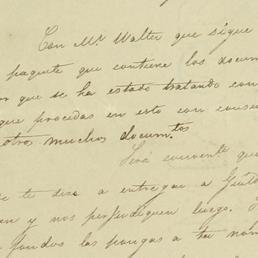 Con Mr. Walter que sigue
paquete que contiene los docum
que se ha estado tratando con
que procedas en esto con
otro muchos documtos
Será convente que
te dira a entregar a
y nos perjudiquen luego.
fondos los pongas a tu nom